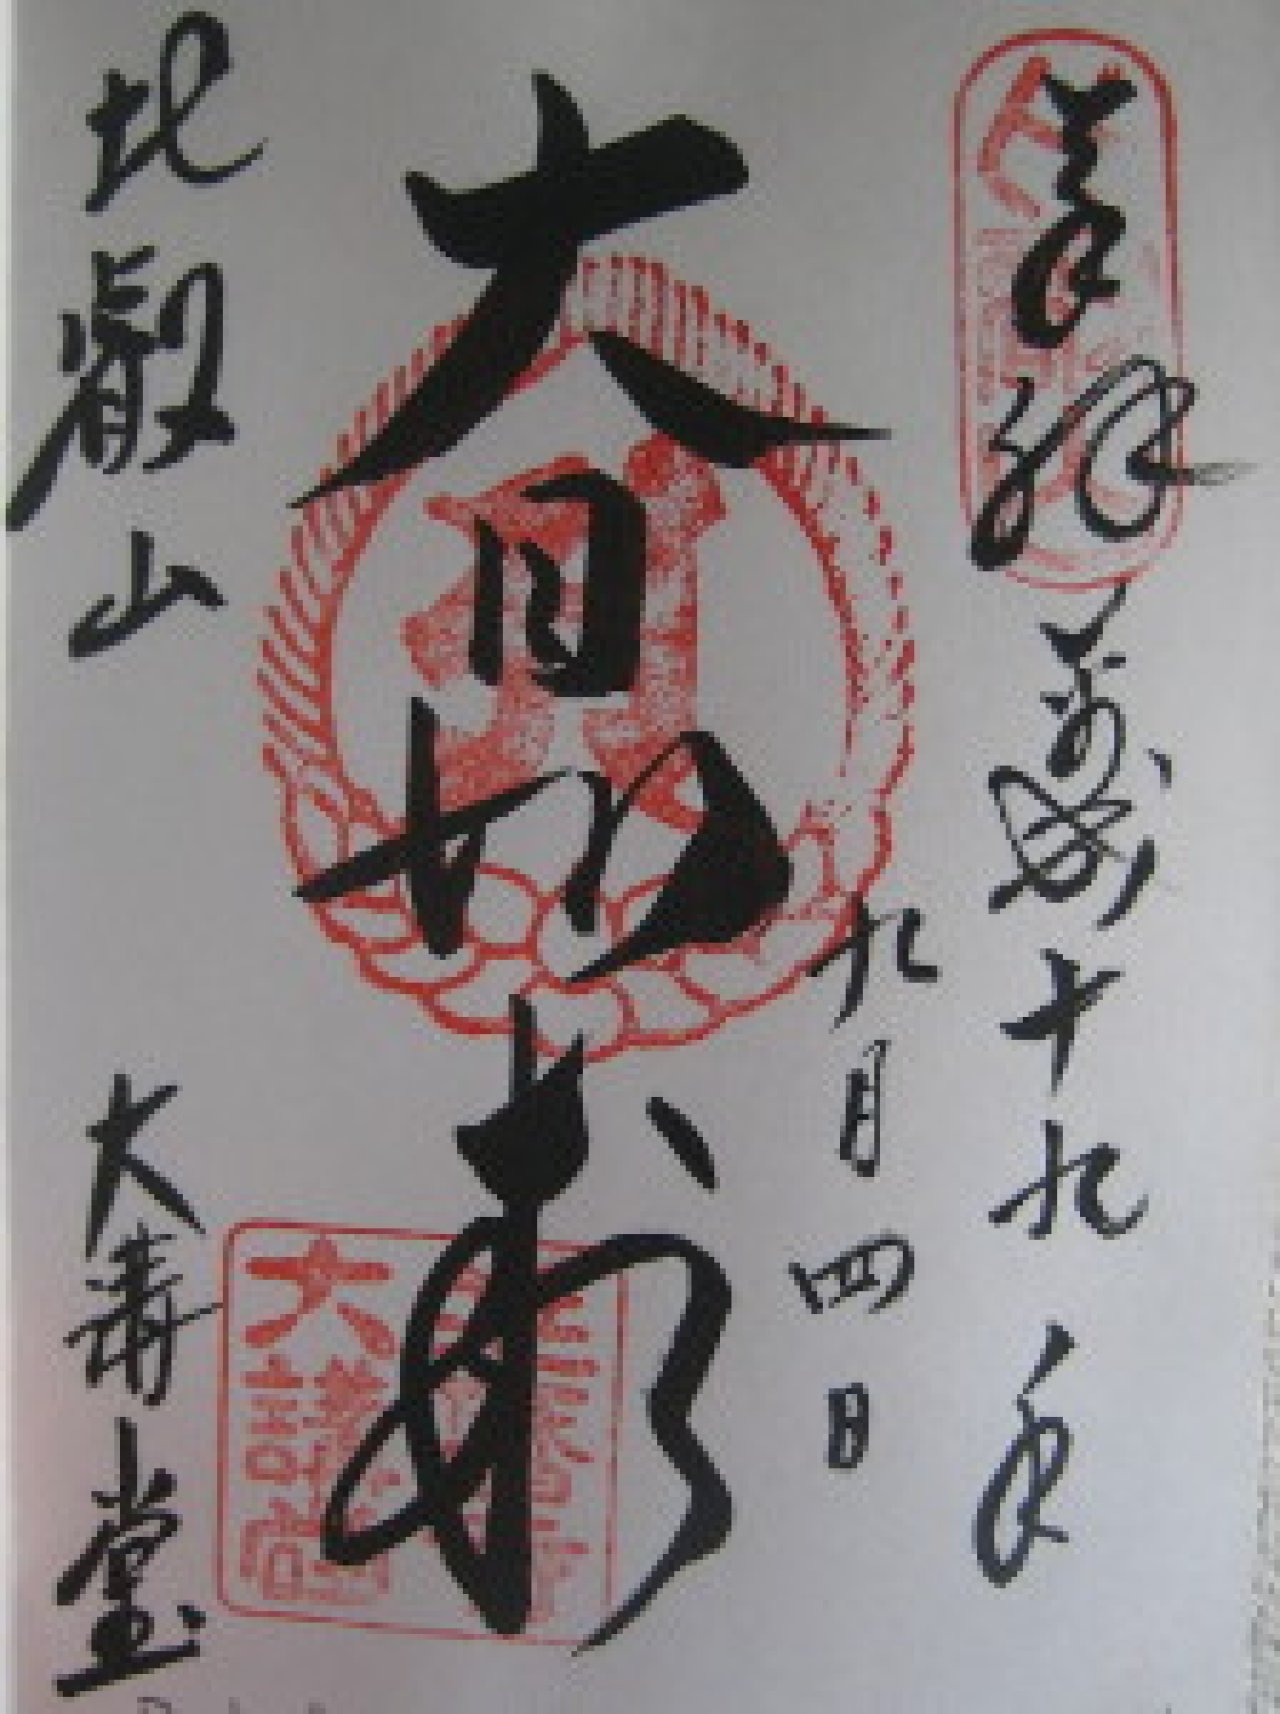 奉拝 平成十九年
九月四日
大日如来
比叡山 大講堂